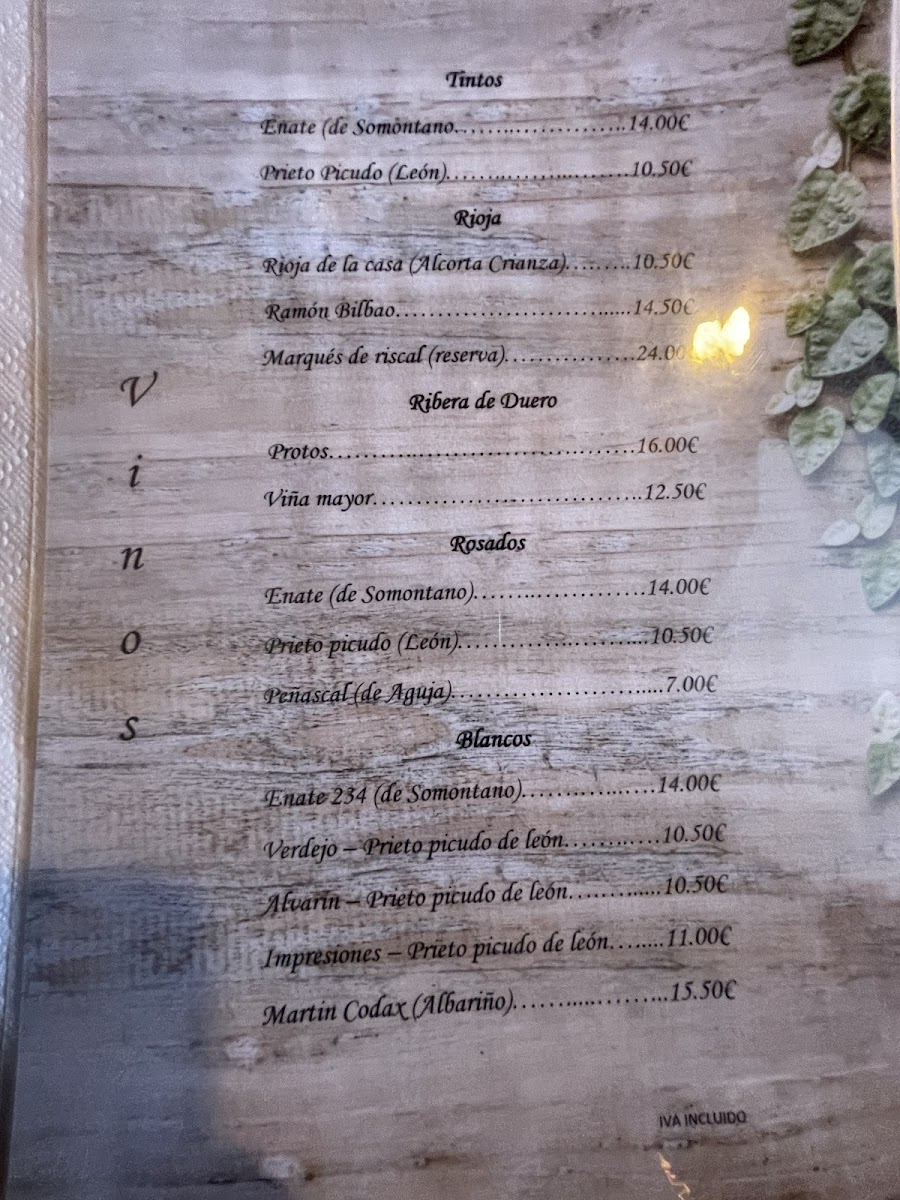 Tintos
Enate (de Somontano......................14.00€
Prieto Picudo (León)......................10.50€
Rioja
Rioja de la casa (Alcorta Crianza).........10.50€
Ramón Bilbao..............................14.50€
Marqués de riscal (reserva)................24.00
Ribera de Duero
Protos.....................................16.00€
Viña mayor................................12.50€
Rosados
Enate (de Somontano).....................14.00€
Prieto picudo (León).......................10.50€
Peñascal (de Aguja)........................7.00€
Blancos
Enate 234 (de Somontano)................14.00€
Verdejo – Prieto picudo de león............10.50€
Alvarín – Prieto picudo de león............10.50€
Impresiones – Prieto picudo de león.......11.00€
Martin Codax (Albariño)...................15.50€
Vinos
IVA INCLUIDO